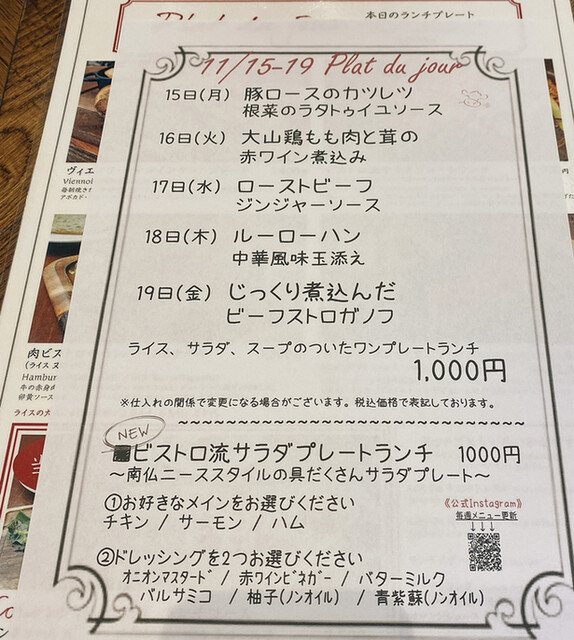 本日のランチプレート
11/15-19 Plat du jour
15日(月) 豚ロースのカツレツ
根菜のラタトゥイユソース
16日(火) 大山鶏もも肉と茸の
赤ワイン煮込み
17日(水) ローストビーフ
ジンジャーソース
18日(木) ルーローハン
中華風味玉添え
19日(金) じっくり煮込んだ
ビーフストロガノフ
ライス、サラダ、スープのついたワンプレートランチ
1,000円
※仕入れの関係で変更になる場合がございます。税込価格で表記しております。
NEW
ビストロ流サラダプレートランチ 1000円
～南仏ニーススタイルの具だくさんサラダプレート～
①お好きなメインをお選びください
チキン / サーモン / ハム
《公式Instagram》
毎週メニュー更新
↓↓↓
②ドレッシングを2つお選びください
オニオンマスタード / 赤ワインビネガー / バターミルク
バルサミコ / 柚子(ノンオイル) / 青紫蘇(ノンオイル)
ヴィエ
Viennoi
アボカド・
肉ビス
(ライス
Hambur
牛の赤身
卵黄ソース
ライスの大